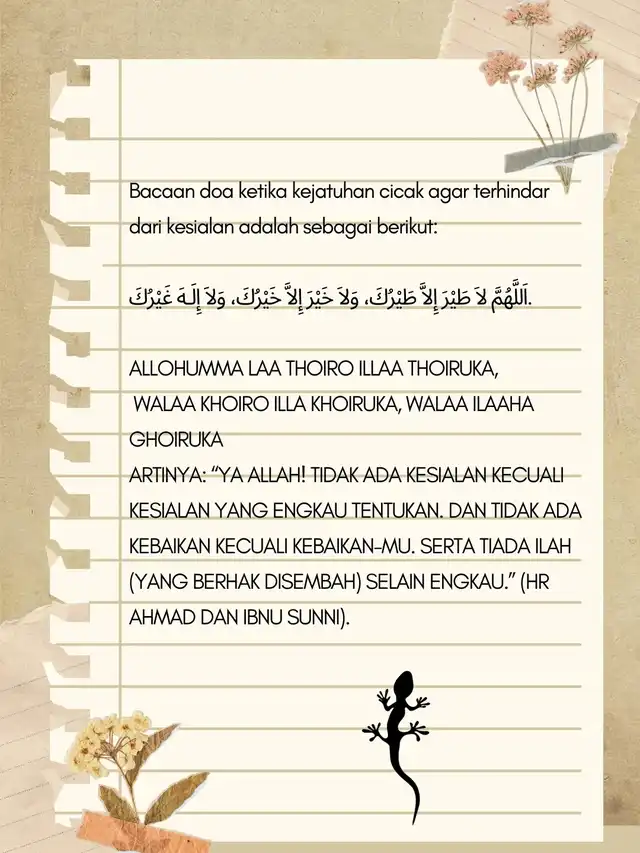 Bacaan doa ketika kejatuhan cicak agar terhindar
dari kesialan adalah sebagai berikut:
اَللَّهُمَّ لاَ طَيْرَ إِلاَّ طَيْرُكَ، وَلاَ خَيْرَ إِلاَّ خَيْرُكَ، وَلاَ إِلَـهَ غَيْرُكَ.
ALLOHUMMA LAA THOIRO ILLAA THOIRUKA,
WALAA KHOIRO ILLA KHOIRUKA, WALAA ILAAHA
GHOIRUKA
ARTINYA: “YA ALLAH! TIDAK ADA KESIALAN KECUALI
KESIALAN YANG ENGKAU TENTUKAN. DAN TIDAK ADA
KEBAIKAN KECUALI KEBAIKAN-MU. SERTA TIADA ILAH
(YANG BERHAK DISEMBAH) SELAIN ENGKAU.” (HR
AHMAD DAN IBNU SUNNI).